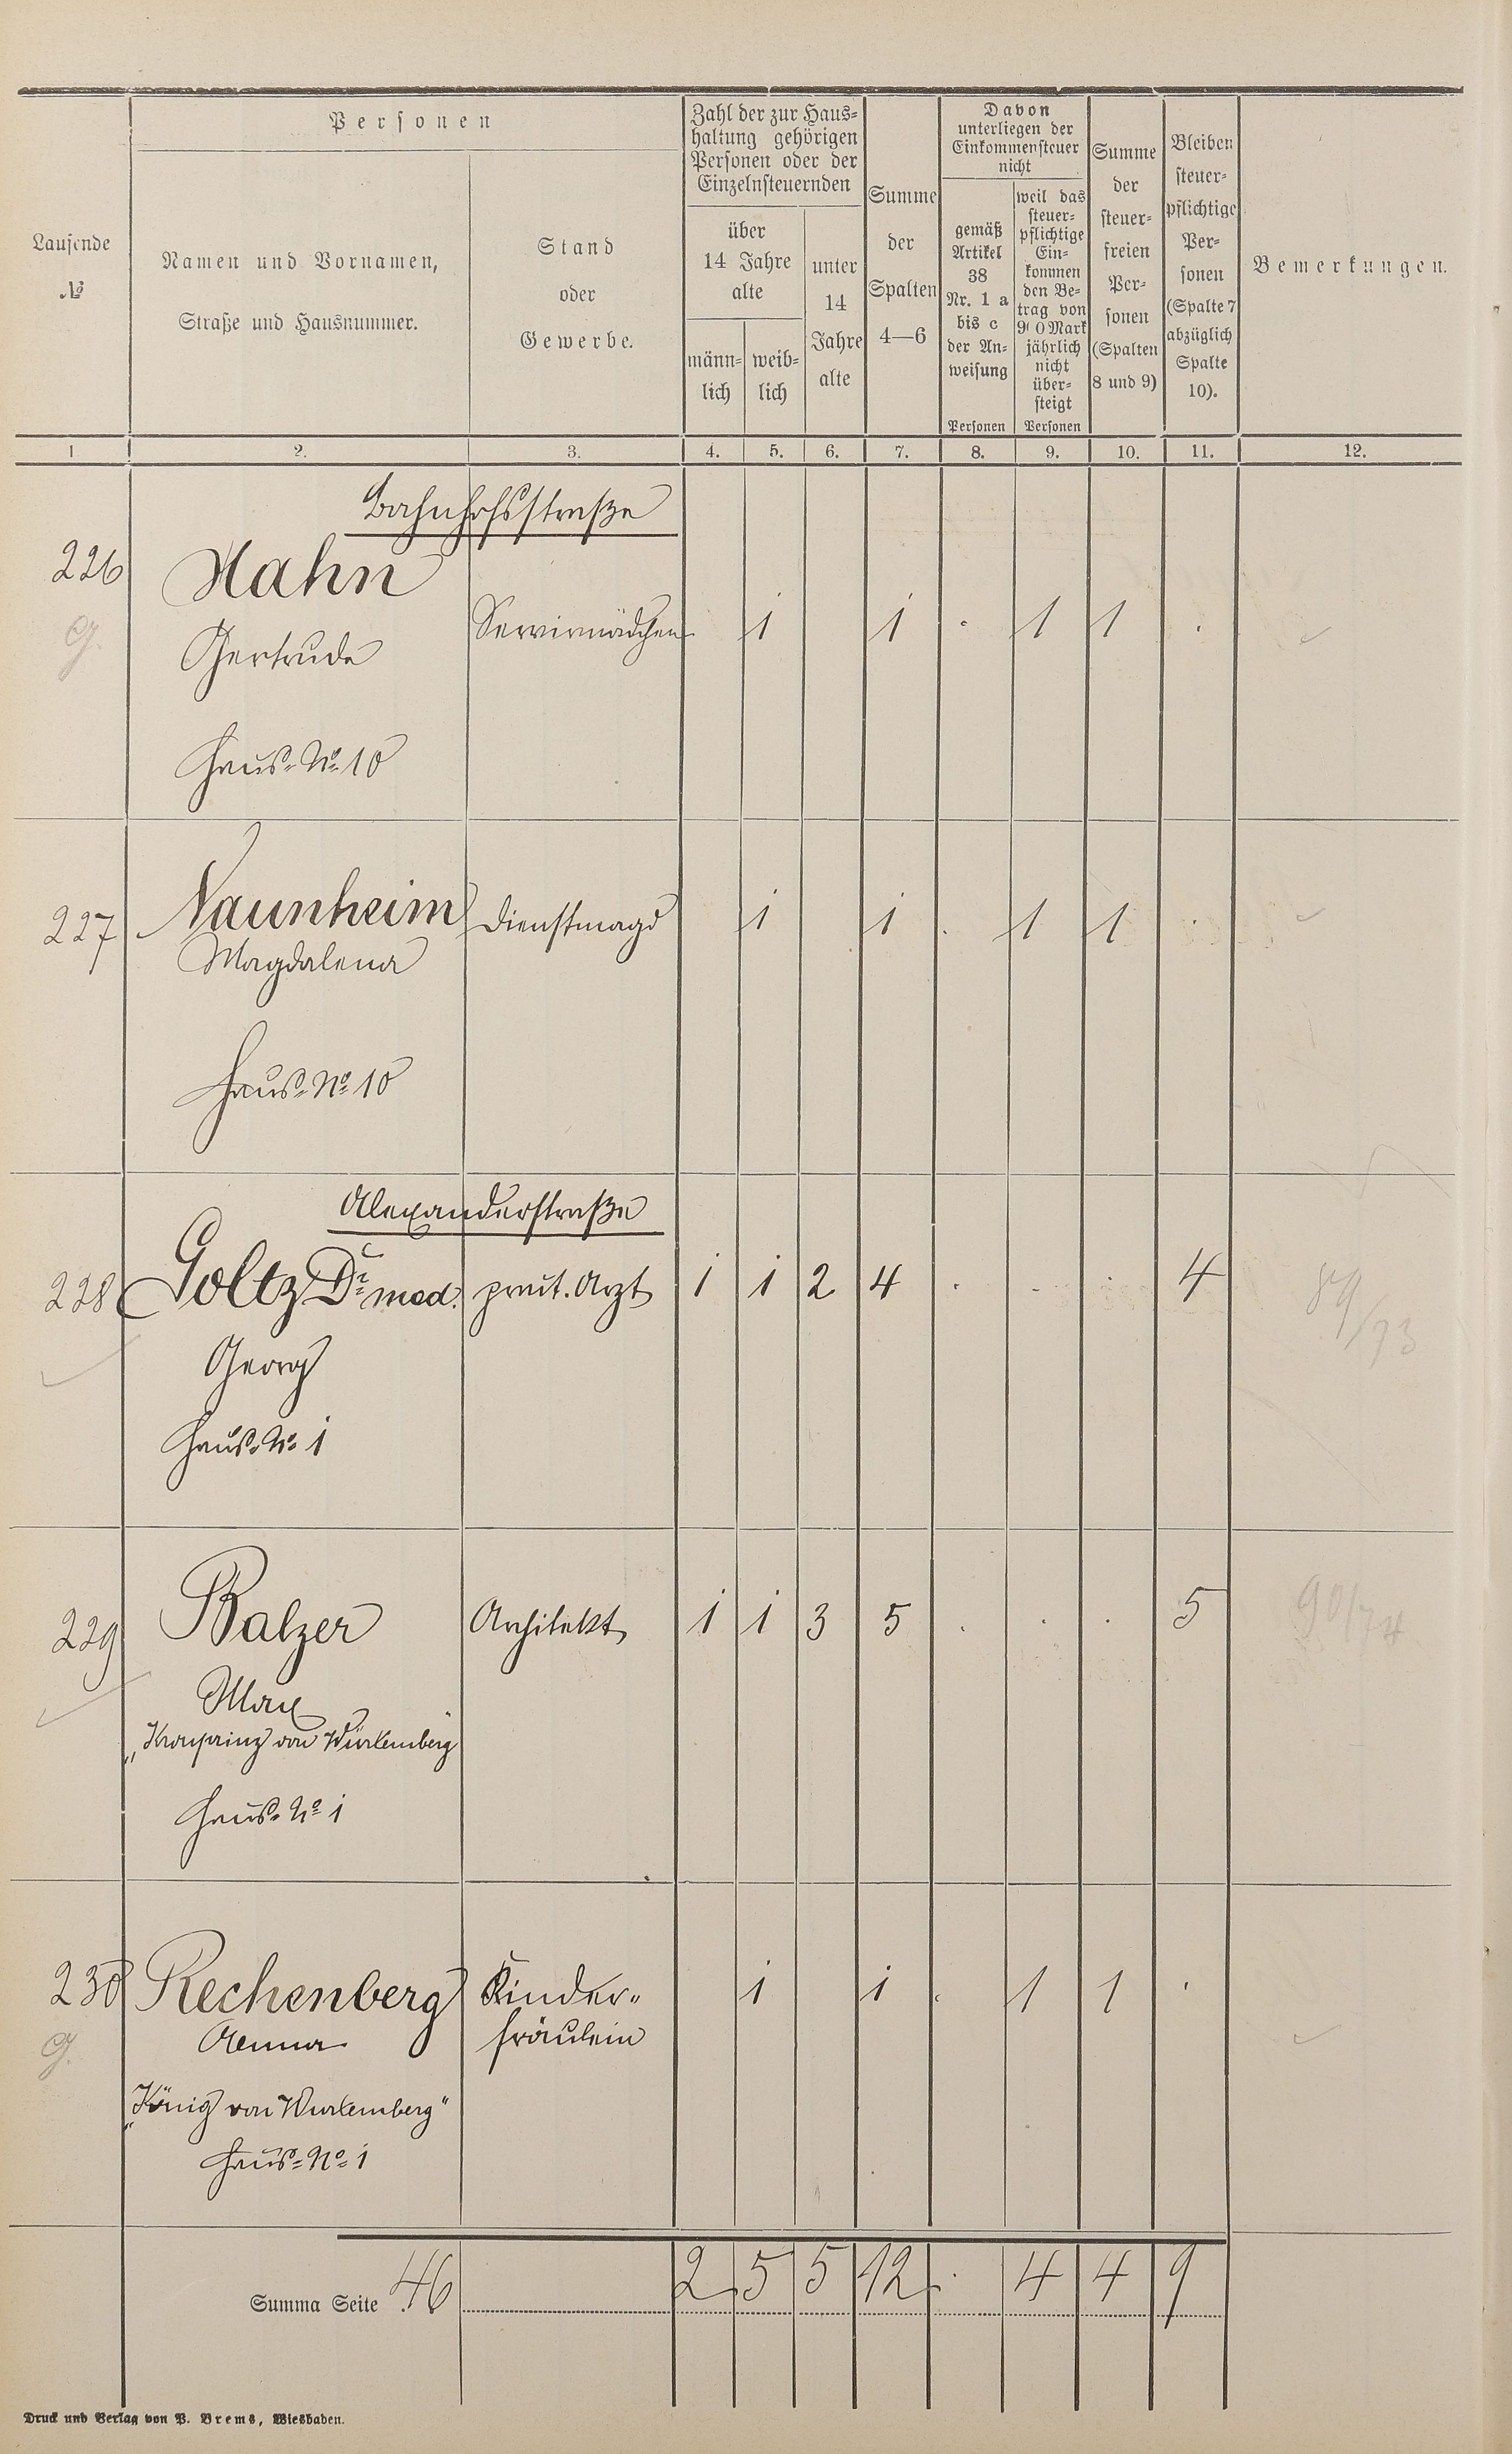 Laufende
№
Personen
Namen und Vornamen,
Straße und Hausnummer.
Stand
oder
Gewerbe.
Zahl der zur Haus-
haltung gehörigen
Personen oder der
Einzelnsteuernden
über
14 Jahre
alte
männ-
lich
weib-
lich
unter
14
Jahre
alte
Summe
der
Spalten
4—6
Davon
unterliegen der
Einkommensteuer
nicht
gemäß
Artikel
38
Nr. 1 a
bis c
der An-
weisung
Personen
weil das
steuer-
pflichtige
Ein-
kommen
den Be-
trag von
900 Mark
jährlich
nicht
über-
steigt
Personen
Summe
der
steuer-
freien
Per-
sonen
(Spalten
8 und 9)
Bleiben
steuer-
pflichtige
Per-
sonen
(Spalte 7
abzüglich
Spalte
10).
Bemerkungen.
1 2. 3. 4. 5. 6. 7. 8. 9. 10. 11. 12.
Bahnhofsstraße
226 Hahn
G. Gertrude Servirmädchen 1 1 . 1 1 .
Haus-No 10
227 Naunheim Dienstmagd 1 1 . 1 1 .
Magdalena
Haus-No 10
Alexanderstraße
228 Goltz Dr med. prakt. Arzt 1 1 2 4 . . . 4 89/73
Georg
Haus-No 1
229 Balzer Architekt 1 1 3 5 . . . 5 90/74
Max
„Kronprinz von Würtemberg"
Haus-No 1
230 Rechenberg Kinder- 1 1 . 1 1 .
G. Anna fräulein
„König von Wurtemberg"
Haus-No 1
Summa Seite 46 2 5 5 12 . 4 4 9
Druck und Verlag von P. Brems, Wiesbaden.